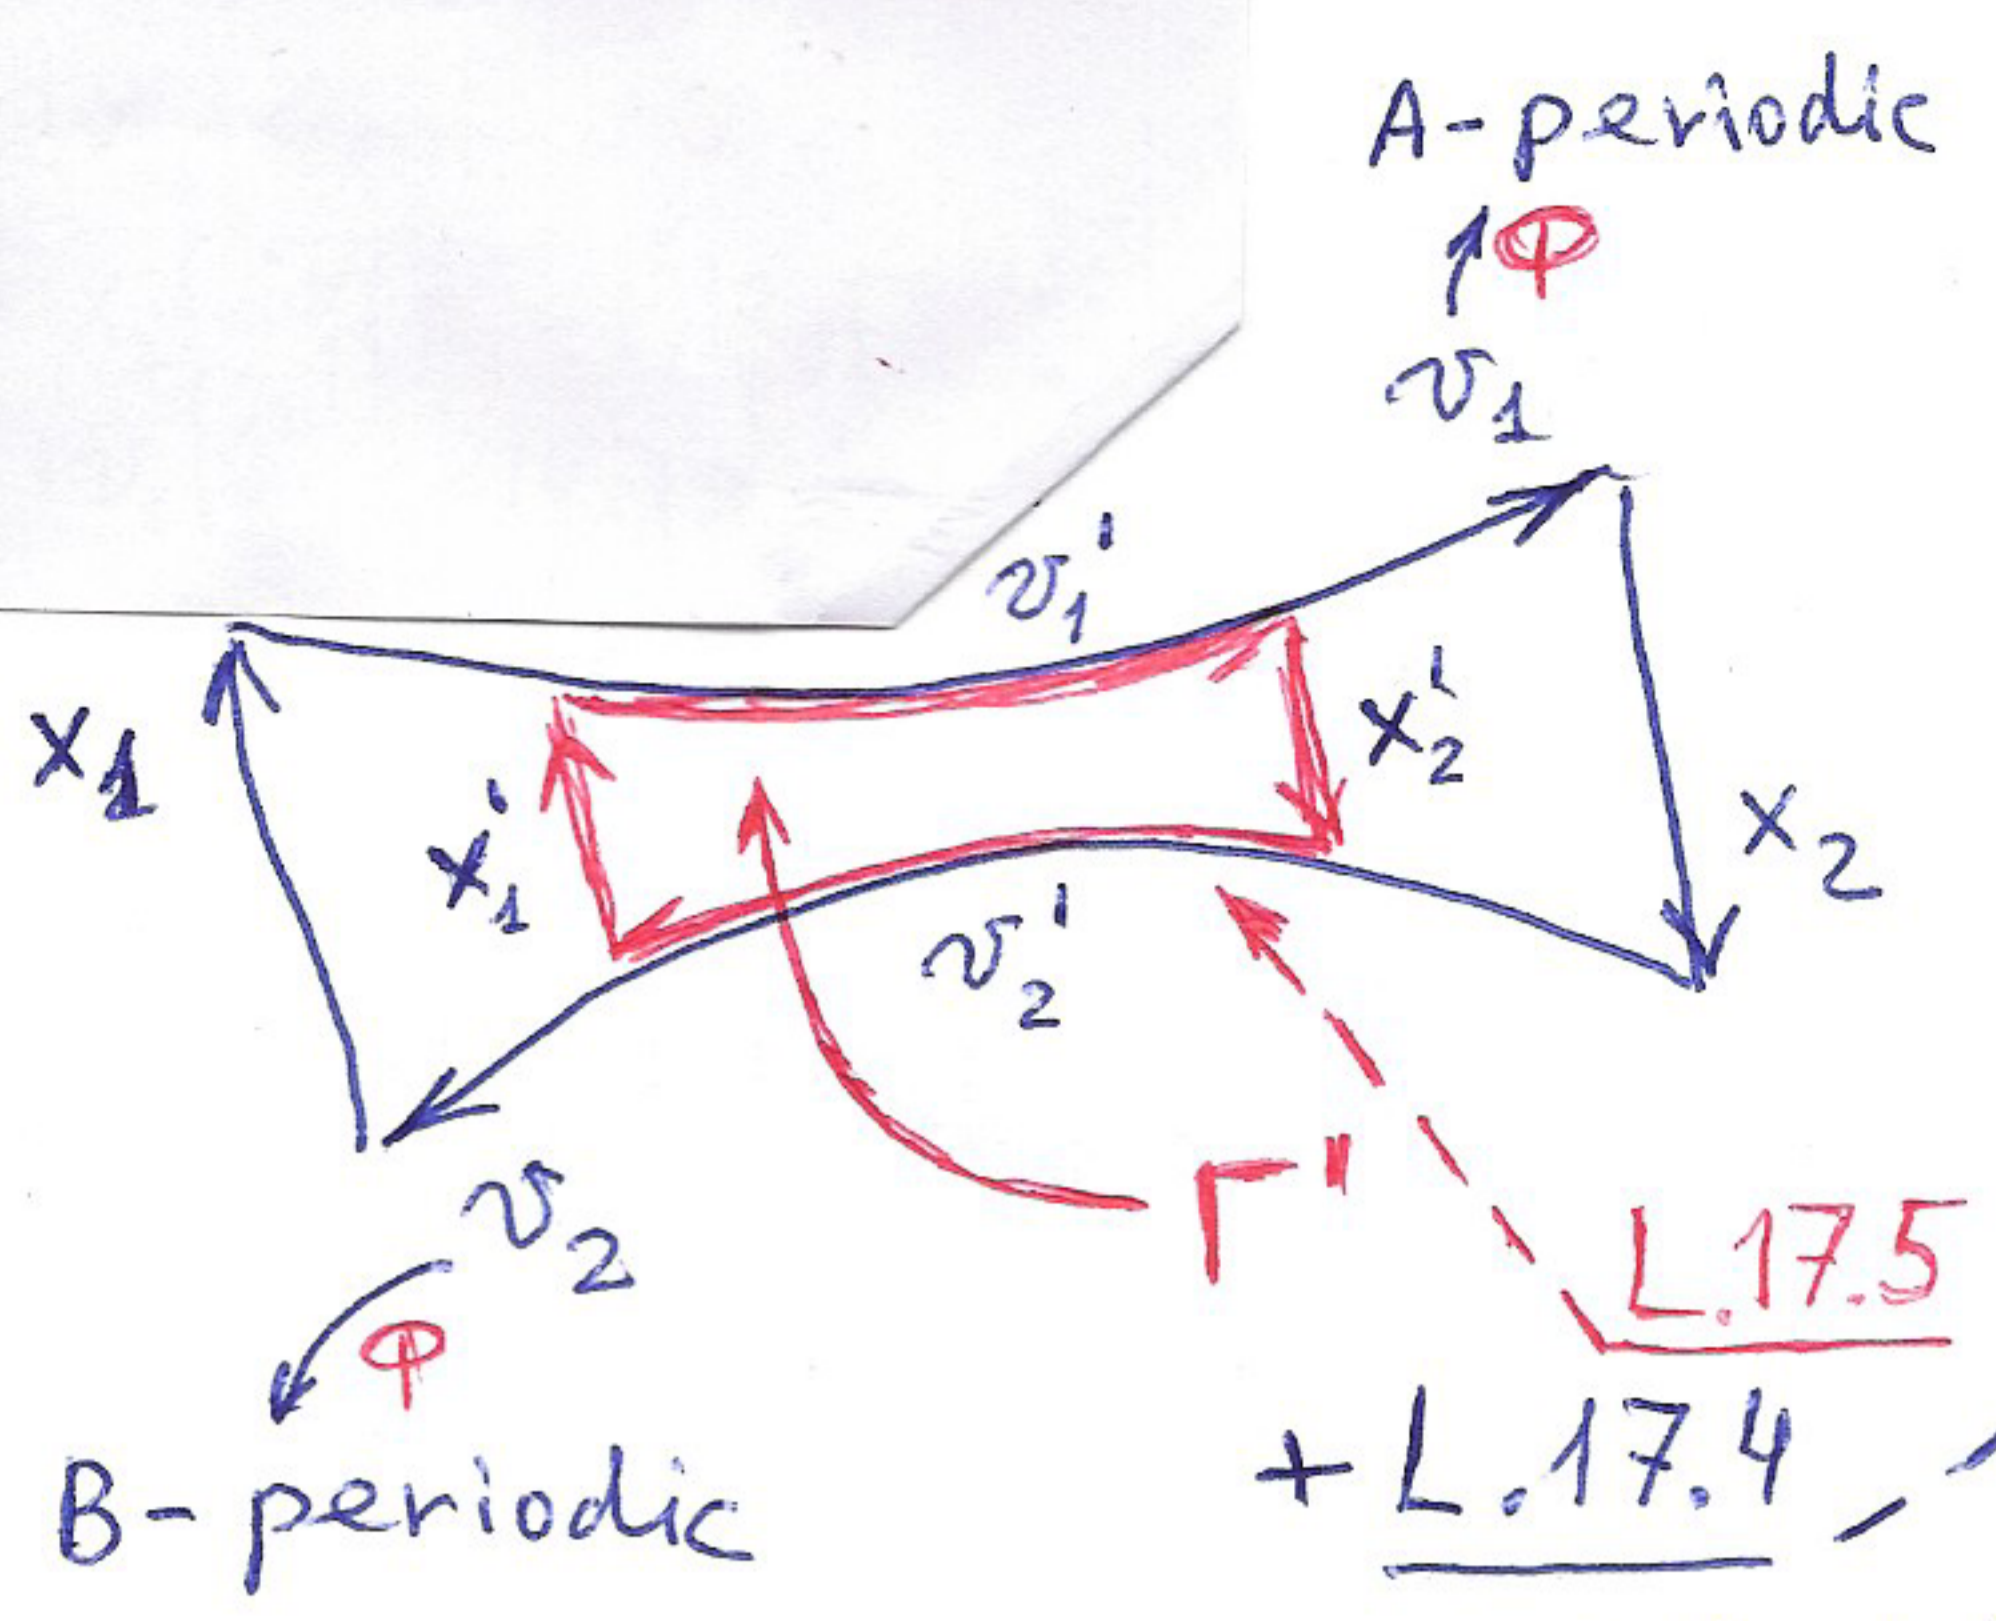 A-periodic
φ
v₁
v₁'
x₁
x₁'
x₂'
x₂
v₂'
v₂
φ
Γ''
L.17.5
+ L.17.4
B-periodic